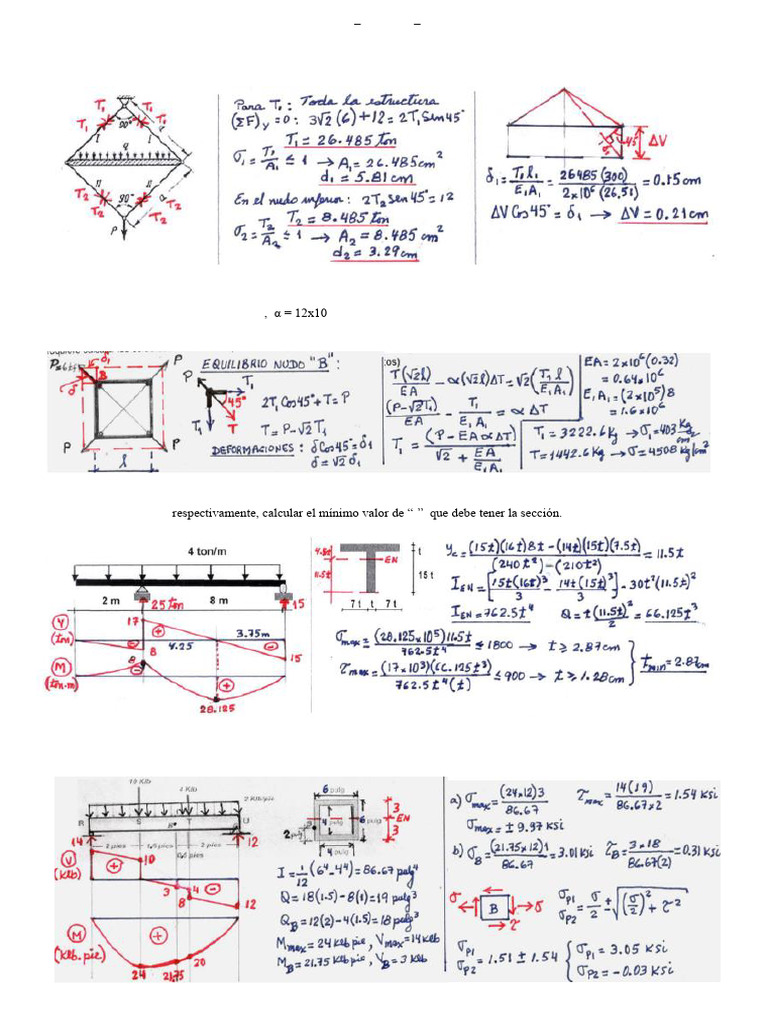 Para T₁: Toda la estructura
(ΣF)y=0: 3√2(6)+12=2T₁Sen45°
T₁=26.485 ton
σ₁=T₁/A₁≤1 → A₁=26.485cm²
d₁=5.81cm
En el nudo inferior: 2T₂Sen45°=12
T₂=8.485 ton
σ₂=T₂/A₂≤1 → A₂=8.485cm²
d₂=3.29cm
T₁ T₁
90°
I I
q
II II
T₂ 90° T₂
P
45° ΔV
δ₁=T₁l₁/E₁A₁=26485(300)/2x10⁶(26.51)=0.15cm
ΔVCos45°=δ₁ → ΔV=0.21cm
, α = 12x10
P δ₁ P
δ B
P P
l
EQUILIBRIO NUDO "B":
P T₁
45°
T₁ T
2T₁Cos45°+T=P
T=P-√2T₁
DEFORMACIONES: δCos45°=δ₁
δ=√2δ₁
T(√2l)/EA-α(√2l)ΔT=√2(T₁l/E₁A₁)
(P-√2T₁)/EA-T₁/E₁A₁=αΔT
T₁=(P-EAαΔT)/(√2+EA/E₁A₁)
EA=2x10⁶(0.32)
=0.64x10⁶
E₁A₁=(2x10⁵)8
=1.6x10⁶
T₁=3222.6Kg → σ₁=403Kg/cm²
T=1442.6Kg → σ=4508Kg/cm²
respectivamente, calcular el mínimo valor de “ ” que debe tener la sección.
4 ton/m
2 m 25ton 8 m 15
V (ton) 17 + 4.25 3.75m
- 8 - 15
M (ton.m) 8 - +
28.125
4.5t t
EN
11.5t 15t
7t t 7t
yc=(15t)(16t)8t-(14t)(15t)(7.5t)/(240t²)-(210t²)=11.5t
IEN=[15t(16t)³/3-14t(15t)³/3]-30t²(11.5t)²
IEN=762.5t⁴ Q=t(11.5t)²/2=66.125t³
σmax=(28.125x10⁵)11.5t/762.5t⁴≤1800 → t≥2.87cm
τmax=(17x10³)(66.125t³)/762.5t⁴(t)≤900 → t≥1.28cm
tmin=2.87cm
10 Klb 4 Klb
2 Klb/pie
R S B U
2 pies 1,5 pies 2 pies
14 0,5 pies 12
V (Klb) + 10
3 4 -
8 12
M (Klb.pie) +
24 21.75 20
6 pulg
4 pulg 6 pulg 3
EN
2 pulg B 3
4 pulg
I=1/12(6⁴-4⁴)=86.67 pulg⁴
Q=18(1.5)-8(1)=19 pulg³
QB=12(2)-4(1.5)=18 pulg³
Mmax=24klb pie, Vmax=14klb
MB=21.75 Klb pie, VB=3 Klb
a) σmax=(24x12)3/86.67 τmax=14(19)/86.67x2=1.54 Ksi
σmax=±9.97 Ksi
b) σB=(21.75x12)1/86.67=3.01 Ksi τB=3x18/86.67(2)=0.31 Ksi
σ B σ
τ
σP1 σP2=σ/2±√((σ/2)²+τ²)
σP1 σP2=1.51±1.54 {σP1=3.05 Ksi
σP2=-0.03 Ksi